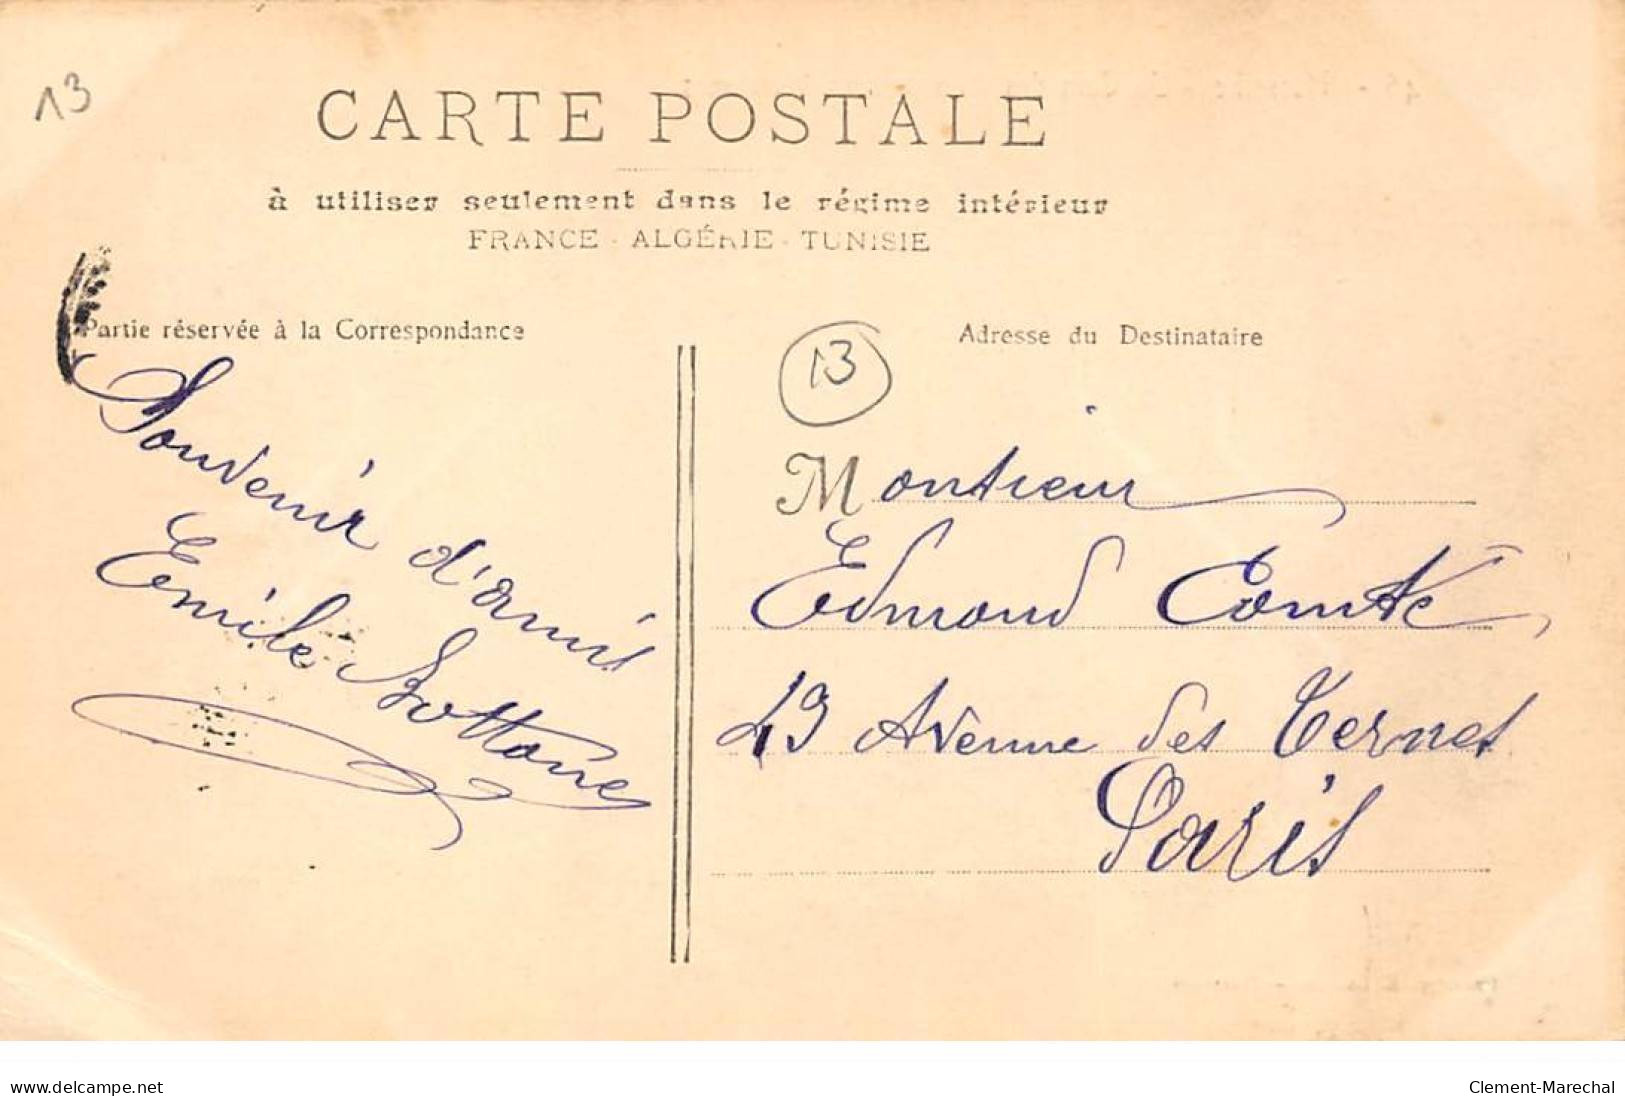 13
CARTE POSTALE
à utiliser seulement dans le régime intérieur
FRANCE - ALGÉRIE - TUNISIE
Partie réservée à la Correspondance
Souvenir d'amis
Emile Bottone
Adresse du Destinataire
13
Monsieur
Edmond Comte
43 Avenue des Ternes
Paris
www.delcampe.net
Clement-Marechal